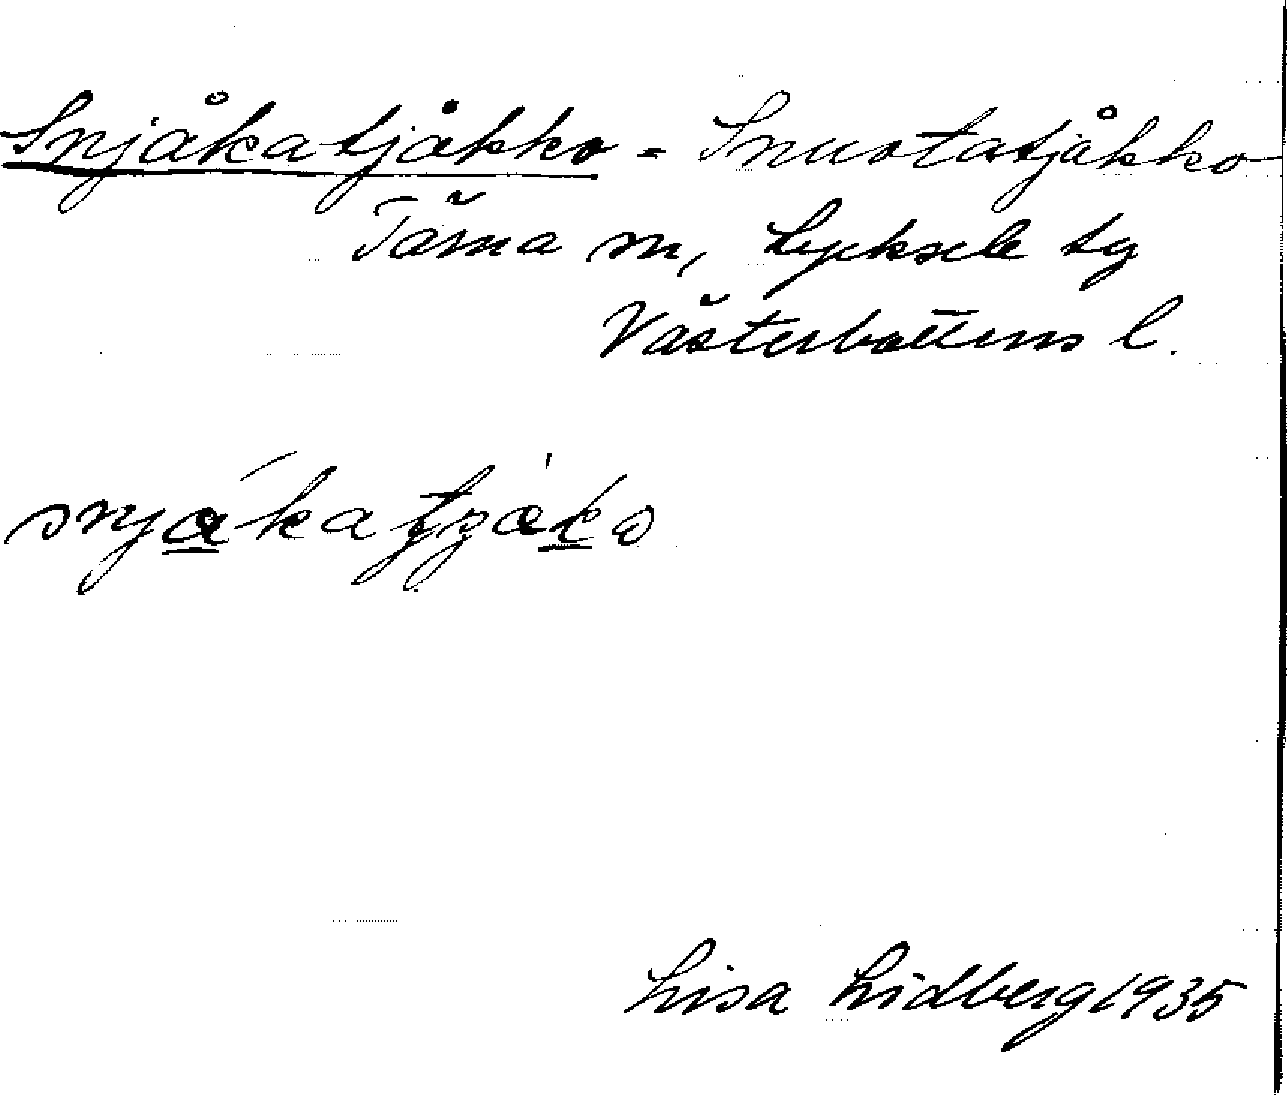 Snjåkatjåkko - Snuotatjåkko
Tärna sn, Lycksele tg
Västerbottens l.
snjákatjåko
Lisa Lidberg 1935